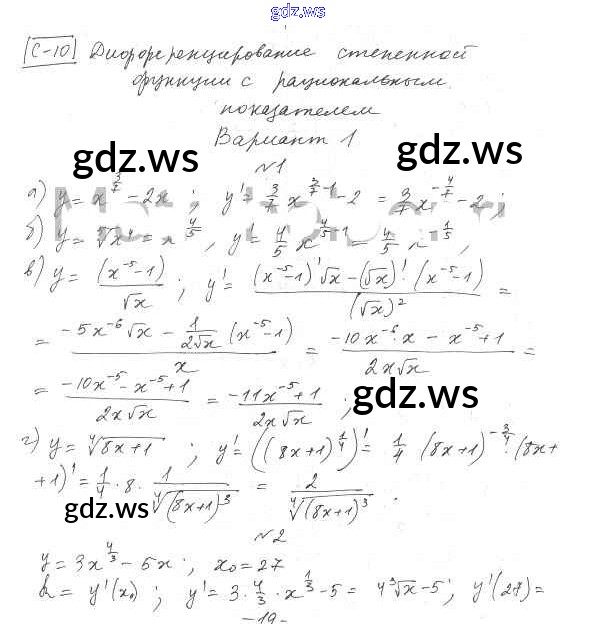 gdz.ws
[С-10] Дифференцирование степенной
функции с рациональным
показателем
gdz.ws
gdz.ws
Вариант 1
№1
а) y = x^{3/7} - 2x ; y' = 3/7 x^{3/7 - 1} - 2 = 3/7 x^{-4/7} - 2 ;
б) y = ⁵√x⁴ = x^{4/5} , y' = 4/5 x^{4/5 - 1} = 4/5 x^{-1/5} ,
в) y = (x^{-5} - 1)/√x ; y' = ((x^{-5} - 1)'√x - (√x)' · (x^{-5} - 1))/(√x)² =
= (-5x^{-6}√x - 1/(2√x) (x^{-5} - 1))/x = (-10x^{-6}·x - x^{-5} + 1)/(2x√x) =
= (-10x^{-5} - x^{-5} + 1)/(2x√x) = (-11x^{-5} + 1)/(2x√x) ;
gdz.ws
г) y = ⁴√(8x+1) ; y' = ((8x+1)^{1/4})' = 1/4 (8x+1)^{-3/4} · (8x+
+1)' = 1/4 · 8 · 1/⁴√((8x+1)³) = 2/⁴√((8x+1)³) .
gdz.ws
gdz.ws
№2
y = 3x^{4/3} - 5x ; x₀ = 27
k = y'(x₀) ; y' = 3 · 4/3 · x^{1/3} - 5 = 4³√x - 5 ; y'(27) =
-19-